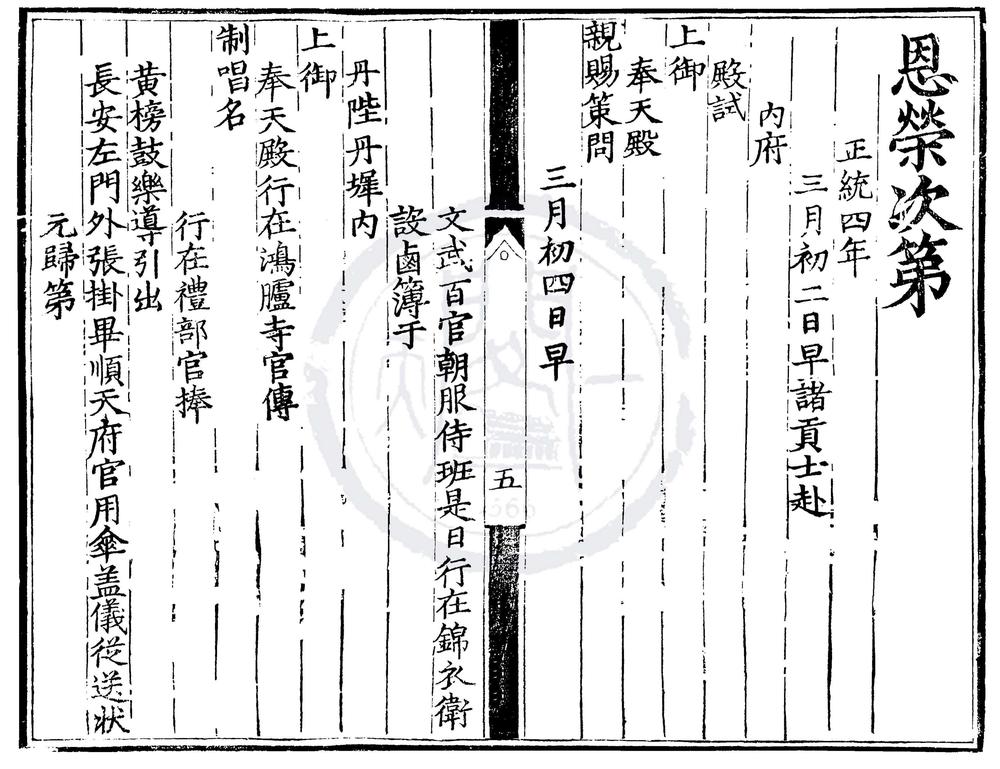 恩榮次第
正統四年
三月初二日早諸貢士赴
內府
殿試
上御
奉天殿
親賜策問
三月初四日早
五
文武百官朝服侍班是日行在錦衣衛
設鹵簿于
丹陛丹墀內
上御
奉天殿行在鴻臚寺官傳
制唱名
行在禮部官捧
黃榜鼓樂導引出
長安左門外張掛畢順天府官用傘盖儀從送狀
元歸第